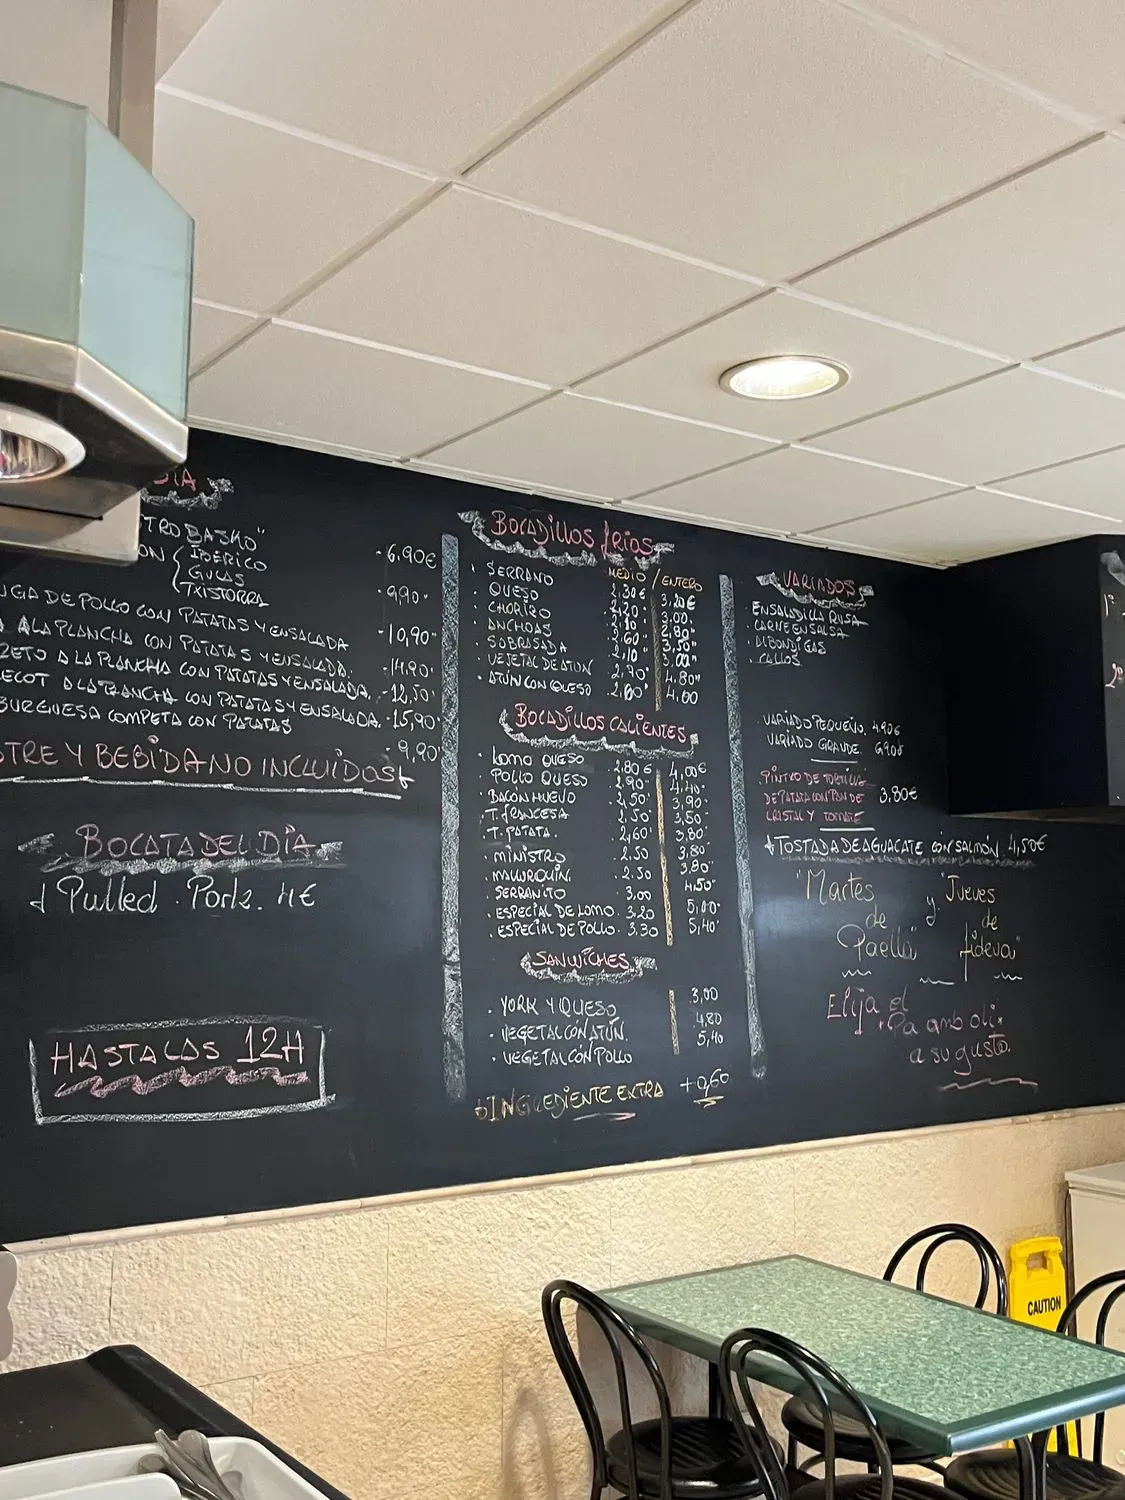 DÍA
TRO BASKO"
IBERICO
GULAS
TXISTORRA
- 6.90€
- 9,90"
UGA DE POLLO CON PATATAS Y ENSALADA - 10,90"
A LA PLANCHA CON PATATAS Y ENSALADA. - 14,90"
RETO A LA PLANCHA CON PATATAS Y ENSALADA. - 12,50"
ECOT A LA PLANCHA CON PATATAS Y ENSALADA. - 15,90"
BURGUESA COMPETA CON PATATAS - 9,90"
STRE Y BEBIDA NO INCLUIDOS
BOCATA DEL DÍA
Pulled Pork. 4€
HASTA LAS 12H
BOCADILLOS FRIOS
MEDIO / ENTERO
SERRANO 2,30€ 3,20€
QUESO 2,20" 3,00"
CHORIZO 2,10" 2,80"
ANCHOAS 2,60" 3,50"
SOBRASADA 2,10" 3,00"
VEJETAL DE ATÚN 2,70" 4,80"
ATÚN CON QUESO 2,60" 4,00
BOCADILLOS CALIENTES
LOMO QUESO 2.80€ 4,00€
POLLO QUESO 2.90" 4,40"
BACON HUEVO 2,50" 3,90"
T. FRANCESA 2.50" 3,50"
T. PATATA. 2,60" 3,80"
MINISTRO 2.50 3,80"
MALLORQUIN. 2.50 3,80"
SERRANITO 3,00 4,50"
ESPECIAL DE LOMO. 3.20 5,00"
ESPECIAL DE POLLO. 3.30 5,40"
SANWICHES
YORK Y QUESO 3,00
VEGETAL CON ATÚN. 4,80
VEGETAL CON POLLO 5,40
INGREDIENTE EXTRA +0,60
VARIADOS
ENSALADILLA RUSA
CARNE EN SALSA
ALBONDIGAS
CALLOS
VARIADO PEQUEÑO. 4.90€
VARIADO GRANDE 6.90€
PINTXO DE TORTILLA
DE PATATA CON PAN DE 3,80€
CRISTAL Y TOMATE
TOSTADA DE AGUACATE CON SALMÓN 4,50€
"Martes y "Jueves
de de
Paella" fideua"
Elija el
Pa amb oli
a su gusto.
1º
2º
CAUTION